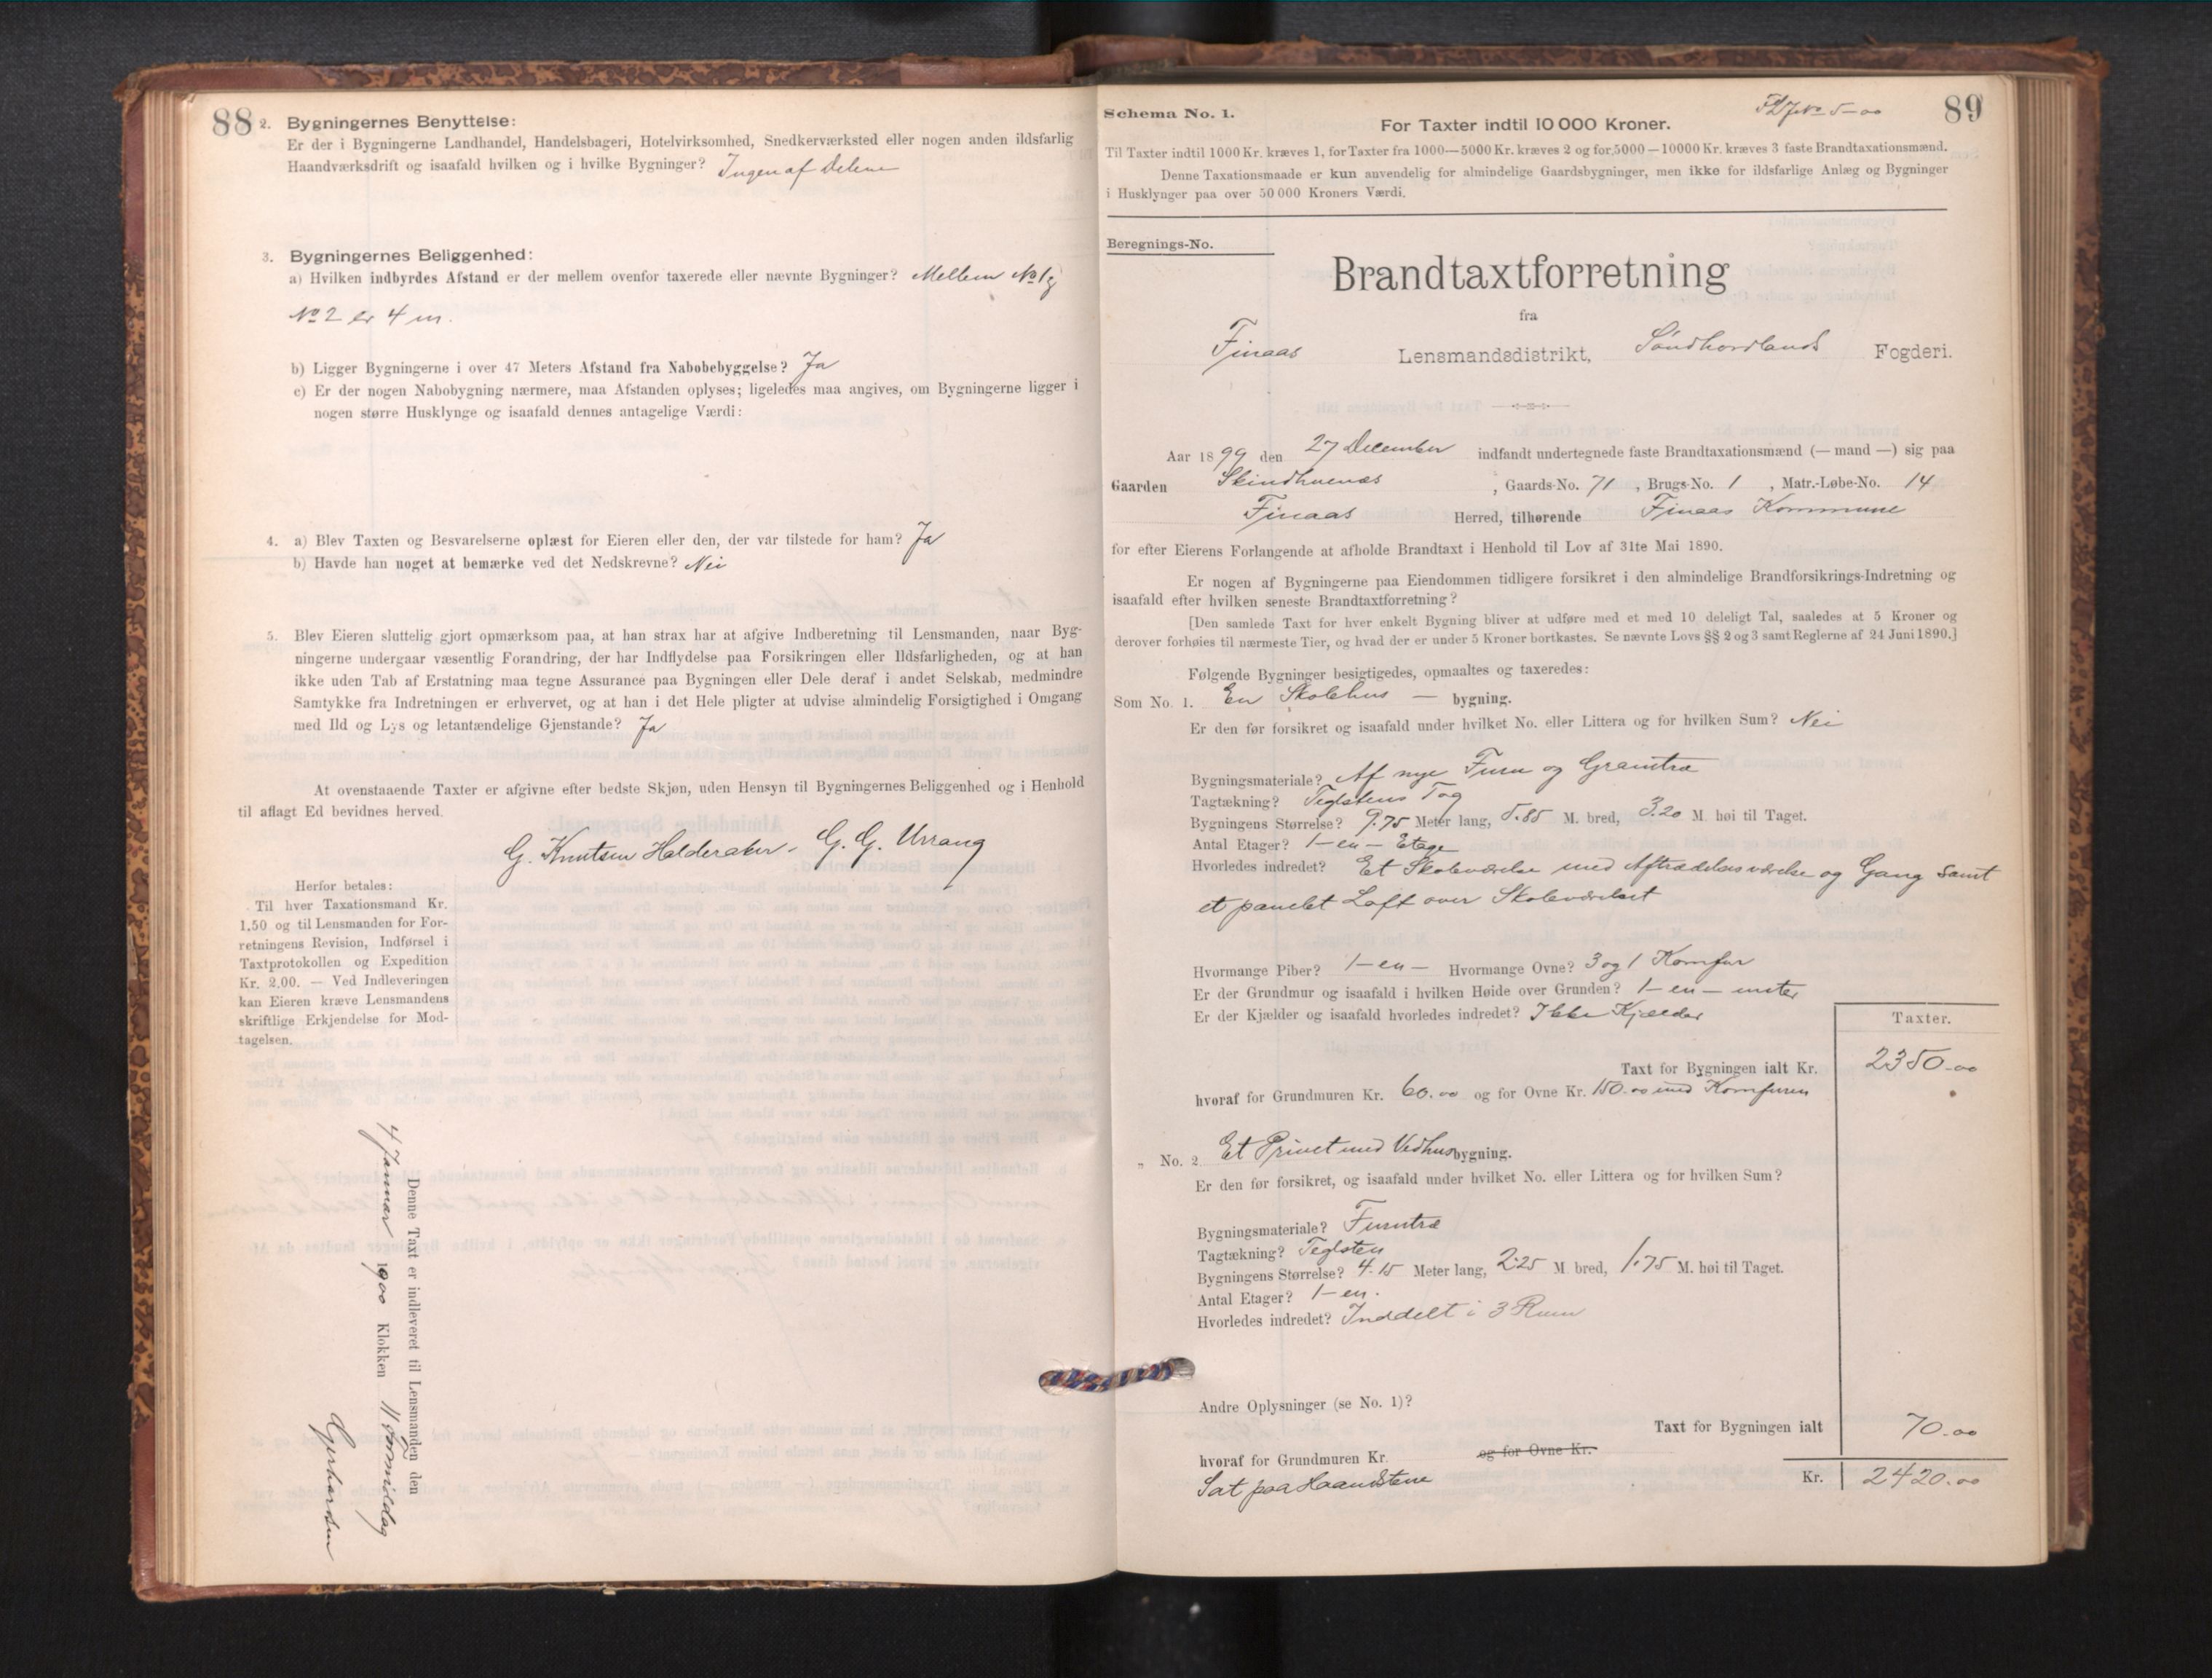 88
2. Bygningernes Benyttelse:
Er der i Bygningerne Landhandel, Handelsbageri, Hotelvirksomhed, Snedkerværksted eller nogen anden ildsfarlig
Haandværksdrift og isaafald hvilken og i hvilke Bygninger? Ingen af Delene
3. Bygningernes Beliggenhed:
a) Hvilken indbyrdes Afstand er der mellem ovenfor taxerede eller nævnte Bygninger? Mellem No 1 og
No 2 er 4 m.
b) Ligger Bygningerne i over 47 Meters Afstand fra Nabobebyggelse? Ja
c) Er der nogen Nabobygning nærmere, maa Afstanden oplyses; ligeledes maa angives, om Bygningerne ligger i
nogen større Husklynge og isaafald dennes antagelige Værdi:
4. a) Blev Taxten og Besvarelserne oplæst for Eieren eller den, der var tilstede for ham? Ja
b) Havde han noget at bemærke ved det Nedskrevne? Nei
5. Blev Eieren sluttelig gjort opmærksom paa, at han strax har at afgive Indberetning til Lensmanden, naar Byg-
ningerne undergaar væsentlig Forandring, der har Indflydelse paa Forsikringen eller Ildsfarligheden, og at han
ikke uden Tab af Erstatning maa tegne Assurance paa Bygningen eller Dele deraf i andet Selskab, medmindre
Samtykke fra Indretningen er erhvervet, og at han i det Hele pligter at udvise almindelig Forsigtighed i Omgang
med Ild og Lys og letantændelige Gjenstande? Ja
At ovenstaaende Taxter er afgivne efter bedste Skjøn, uden Hensyn til Bygningernes Beliggenhed og i Henhold
til aflagt Ed bevidnes herved.
G. Knutsen Halderaker. G. G. Urrang
Herfor betales:
Til hver Taxationsmand Kr.
1,50 og til Lensmanden for For-
retningens Revision, Indførsel i
Taxtprotokollen og Expedition
Kr. 2.00. — Ved Indleveringen
kan Eieren kræve Lensmandens
skriftlige Erkjendelse for Mod-
tagelsen.
Denne Taxt er indleveret til Lensmanden den
4 Januar 1900 Klokken 11 Formiddag
Gerhardsen
89
Schema No. 1.
For Taxter indtil 10 000 Kroner.
Til Taxter indtil 1000 Kr. kræves 1, for Taxter fra 1000—5000 Kr. kræves 2 og for 5000—10000 Kr. kræves 3 faste Brandtaxationsmænd.
Denne Taxationsmaade er kun anvendelig for almindelige Gaardsbygninger, men ikke for ildsfarlige Anlæg og Bygninger
i Husklynger paa over 50 000 Kroners Værdi.
Beregnings-No.
Brandtaxtforretning
fra
Finaas Lensmandsdistrikt, Søndhordlands Fogderi.
Aar 1899 den 27 December indfandt undertegnede faste Brandtaxationsmænd (— mand —) sig paa
Gaarden Skindhuenæs, Gaards-No. 71, Brugs-No. 1, Matr.-Løbe-No. 14
Finaas Herred, tilhørende Finaas Kommune
for efter Eierens Forlangende at afholde Brandtaxt i Henhold til Lov af 31te Mai 1890.
Er nogen af Bygningerne paa Eiendommen tidligere forsikret i den almindelige Brandforsikrings-Indretning og
isaafald efter hvilken seneste Brandtaxtforretning?
[Den samlede Taxt for hver enkelt Bygning bliver at udføre med et med 10 deleligt Tal, saaledes at 5 Kroner og
derover forhøies til nærmeste Tier, og hvad der er under 5 Kroner bortkastes. Se nævnte Lovs §§ 2 og 3 samt Reglerne af 24 Juni 1890.]
Følgende Bygninger besigtigedes, opmaaltes og taxeredes:
Som No. 1. En Skolehus — bygning.
Er den før forsikret og isaafald under hvilket No. eller Littera og for hvilken Sum? Nei
Bygningsmateriale? Af nye Furu og Grantræ
Tagtækning? Teglstens Tag
Bygningens Størrelse? 9.75 Meter lang, 5.85 M. bred, 3.20 M. høi til Taget.
Antal Etager? 1 - en - Etage
Hvorledes indredet? Et Skoleværelse med Aftrædelsesværelse og Gang samt
et panelet Loft over Skoleværelset
Hvormange Piber? 1 - en - Hvormange Ovne? 3 og 1 Komfur
Er der Grundmur og isaafald i hvilken Høide over Grunden? 1 - en - meter
Er der Kjælder og isaafald hvorledes indredet? Ikke Kjælder
Taxter.
Taxt for Bygningen ialt Kr. 2350.00
hvoraf for Grundmuren Kr. 60.00 og for Ovne Kr. 150.00 med Komfuren
" No. 2 Et Privet med Vedhus bygning.
Er den før forsikret, og isaafald under hvilket No. eller Littera og for hvilken Sum?
Bygningsmateriale? Furutræ
Tagtækning? Teglsten
Bygningens Størrelse? 4.15 Meter lang, 2.25 M. bred, 1.75 M. høi til Taget.
Antal Etager? 1 - en.
Hvorledes indredet? Inddelt i 3 Rum
Andre Oplysninger (se No. 1)?
Taxt for Bygningen ialt 70.00
hvoraf for Grundmuren Kr. og for Ovne Kr.
Sat paa Haandstene
Kr. 2420.00